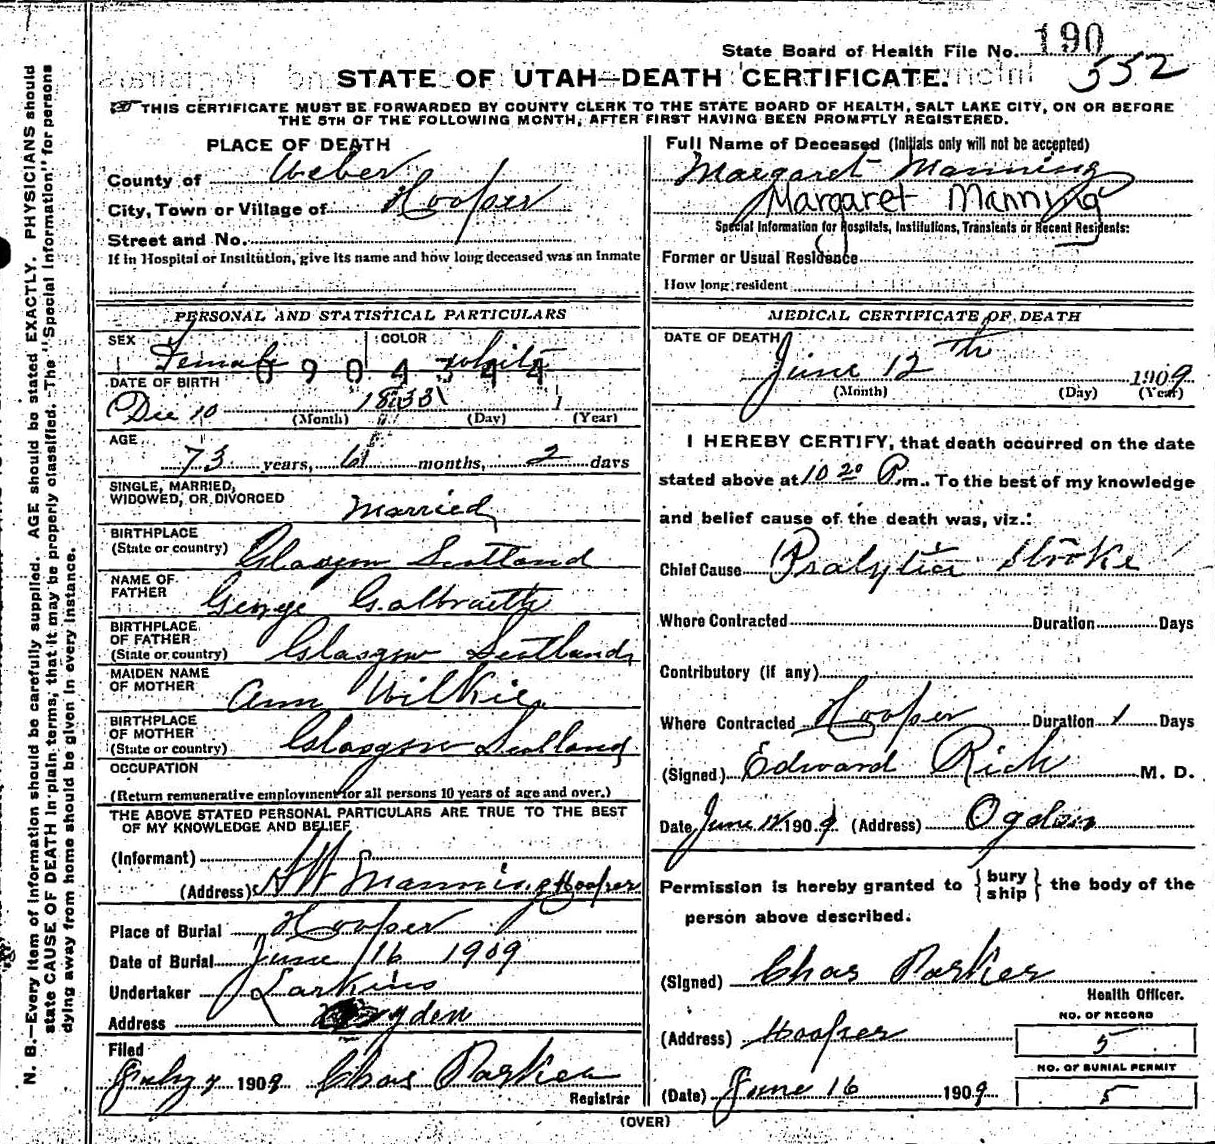 State Board of Health File No. 190
552
STATE OF UTAH—DEATH CERTIFICATE.
THIS CERTIFICATE MUST BE FORWARDED BY COUNTY CLERK TO THE STATE BOARD OF HEALTH, SALT LAKE CITY, ON OR BEFORE
THE 5TH OF THE FOLLOWING MONTH, AFTER FIRST HAVING BEEN PROMPTLY REGISTERED.
PLACE OF DEATH
County of Weber
City, Town or Village of Hooper
Street and No.
If in Hospital or Institution, give its name and how long deceased was an Inmate
PERSONAL AND STATISTICAL PARTICULARS
SEX Female COLOR White
0904344
DATE OF BIRTH
Dec 10 1833
(Month) (Day) (Year)
AGE
73 years, 6 months, 2 days
SINGLE, MARRIED,
WIDOWED, OR DIVORCED Married
BIRTHPLACE
(State or country) Glasgow Scotland
NAME OF
FATHER George Galbraith
BIRTHPLACE
OF FATHER
(State or country) Glasgow Scotland
MAIDEN NAME
OF MOTHER Ann Wilkie
BIRTHPLACE
OF MOTHER
(State or country) Glasgow Scotland
OCCUPATION
(Return remunerative employment for all persons 10 years of age and over.)
THE ABOVE STATED PERSONAL PARTICULARS ARE TRUE TO THE BEST
OF MY KNOWLEDGE AND BELIEF
(Informant)
(Address) Manning Hooper
Place of Burial Hooper
Date of Burial June 16 1909
Undertaker Larkins
Address Ogden
Filed
July 7 1909 Chas Parker
Registrar
Full Name of Deceased (Initials only will not be accepted)
Margaret Manning
Margaret Manning
Special Information for Hospitals, Institutions, Transients or Recent Residents:
Former or Usual Residence
How long resident
MEDICAL CERTIFICATE OF DEATH
DATE OF DEATH
June 12th 1909
(Month) (Day) (Year)
I HEREBY CERTIFY, that death occurred on the date
stated above at 10 20 P.m. To the best of my knowledge
and belief cause of the death was, viz.:
Chief Cause Pralytic Stroke
Where Contracted Duration Days
Contributory (if any)
Where Contracted Hooper Duration 1 Days
(Signed) Edward Rich M. D.
Date June 1909 (Address) Ogden
Permission is hereby granted to { bury ship } the body of the
person above described.
(Signed) Chas Parker
Health Officer.
(Address) Hooper
NO. OF RECORD
5
NO. OF BURIAL PERMIT
5
(Date) June 16 1909
(OVER)
N. B.—Every item of information should be carefully supplied. AGE should be stated EXACTLY. PHYSICIANS should
state CAUSE OF DEATH in plain terms, that it may be properly classified. The "Special Information" for persons
dying away from home should be given in every instance.